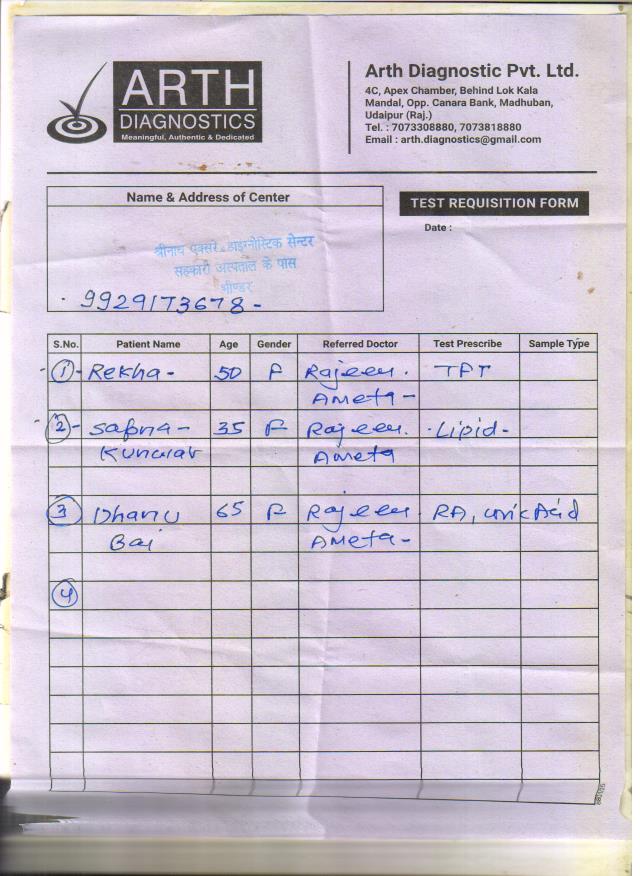 ARTH
DIAGNOSTICS
Meaningful, Authentic & Dedicated
Arth Diagnostic Pvt. Ltd.
4C, Apex Chamber, Behind Lok Kala
Mandal, Opp. Canara Bank, Madhuban,
Udaipur (Raj.)
Tel. : 7073308880, 7073818880
Email : arth.diagnostics@gmail.com
Name & Address of Center
TEST REQUISITION FORM
Date :
श्रीनाथ एक्सरे डाइग्नोस्टिक सेन्टर
सहकारी अस्पताल के पास
भीण्डर
9929173678-
S.No. Patient Name Age Gender Referred Doctor Test Prescribe Sample Type
1 - Rekha - 50 F Rajeev. TFT
Ameta -
2 - Sapna - 35 F Rajeev. Lipid -
Kunwar Ameta
3 Dhanu 65 F Rajeev. RA, Uric Acid
Bai Ameta -
4